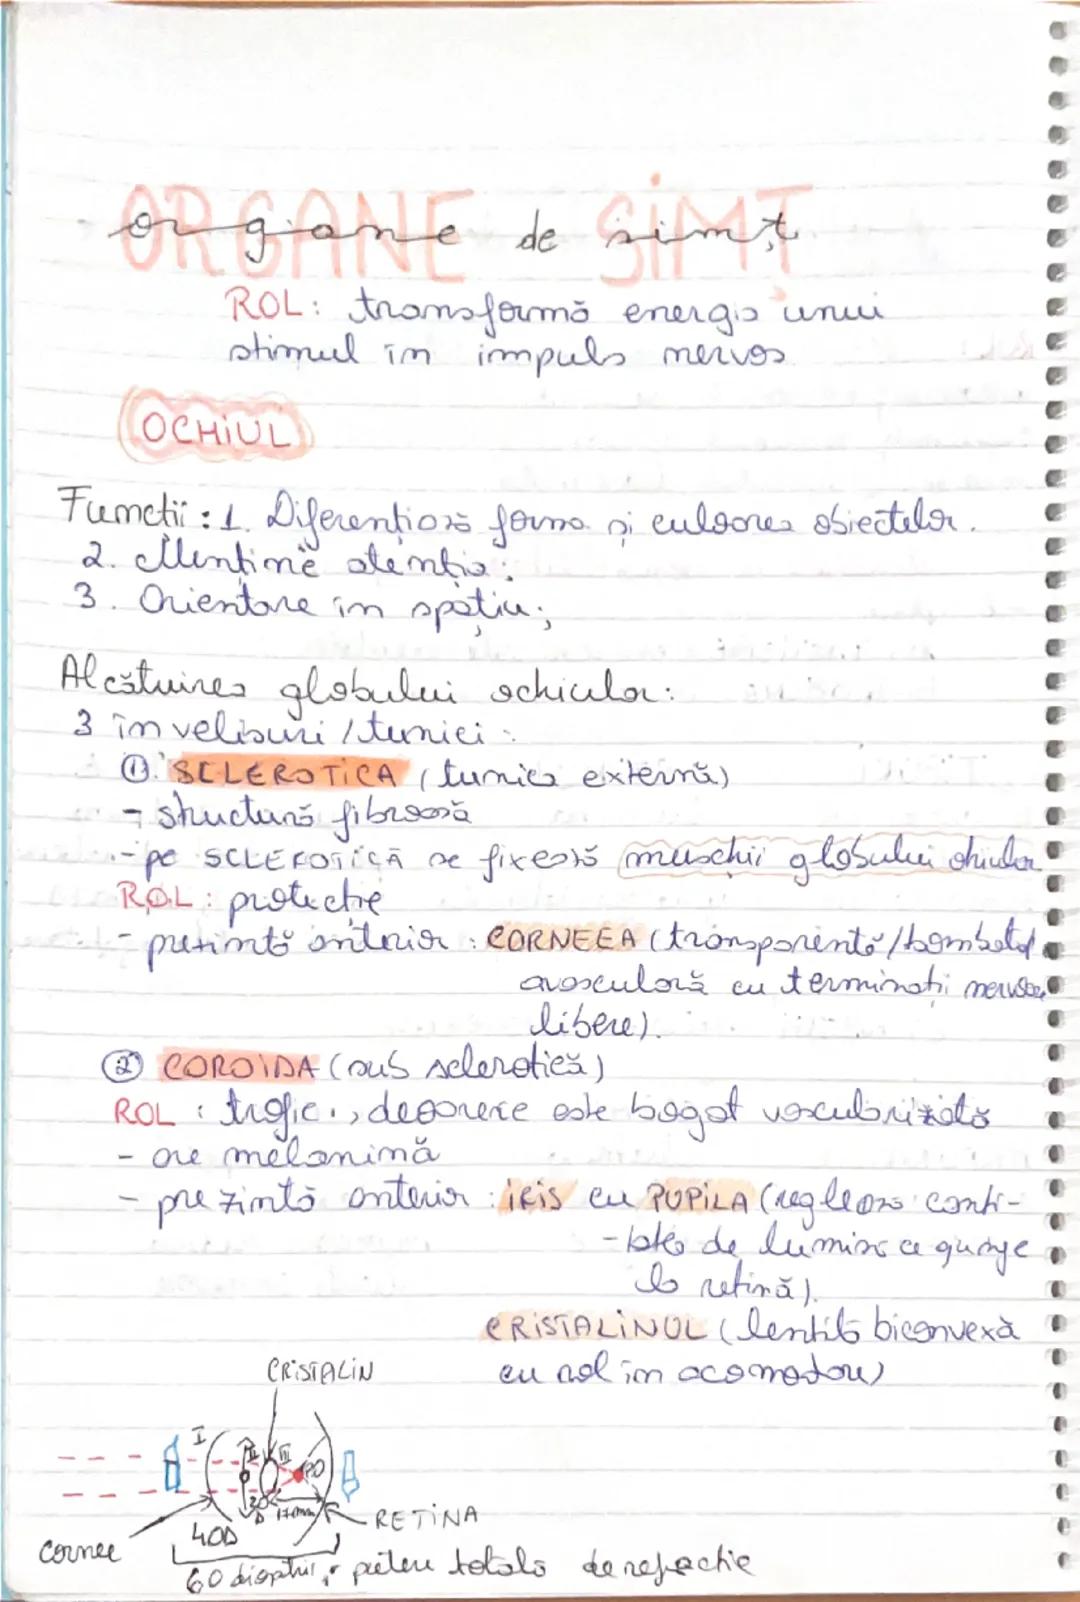 ORGANE SIMȚ
organe de simț
ROL: transformă energia unui
stimul în impuls nervos
OCHIUL
Funcții: 1. Diferențiază forma și culoarea obiectelor.
2. Menține atenția;
3. Orientare în spațiu;
Alcătuirea globului ochicular:
3 învelisuri / tunici:
①. SCLEROTICA (tunica externă)
- structură fibroasă
- pe SCLEROTICĂ se fixează mușchii globului
ROL: protecție
- prezintă anterior: CORNEEA (transparentă/bombată
avasculară cu terminații nervoase
libere).
② COROIDA (sub sclerotică)
ROL: trofic, deoarece este bogat vascularizată
- are melanină
- prezintă anterior: IRIS cu PUPILA (reglează canti-
-tatea de lumină ce ajunge
la retină).
CRISTALINUL (lentilă biconvexă
cu rol în acomodare)
CRISTALIN
I II III
20 D 17mm
RETINA
cornee 40D
60 dioptrii, putere totală de refracție